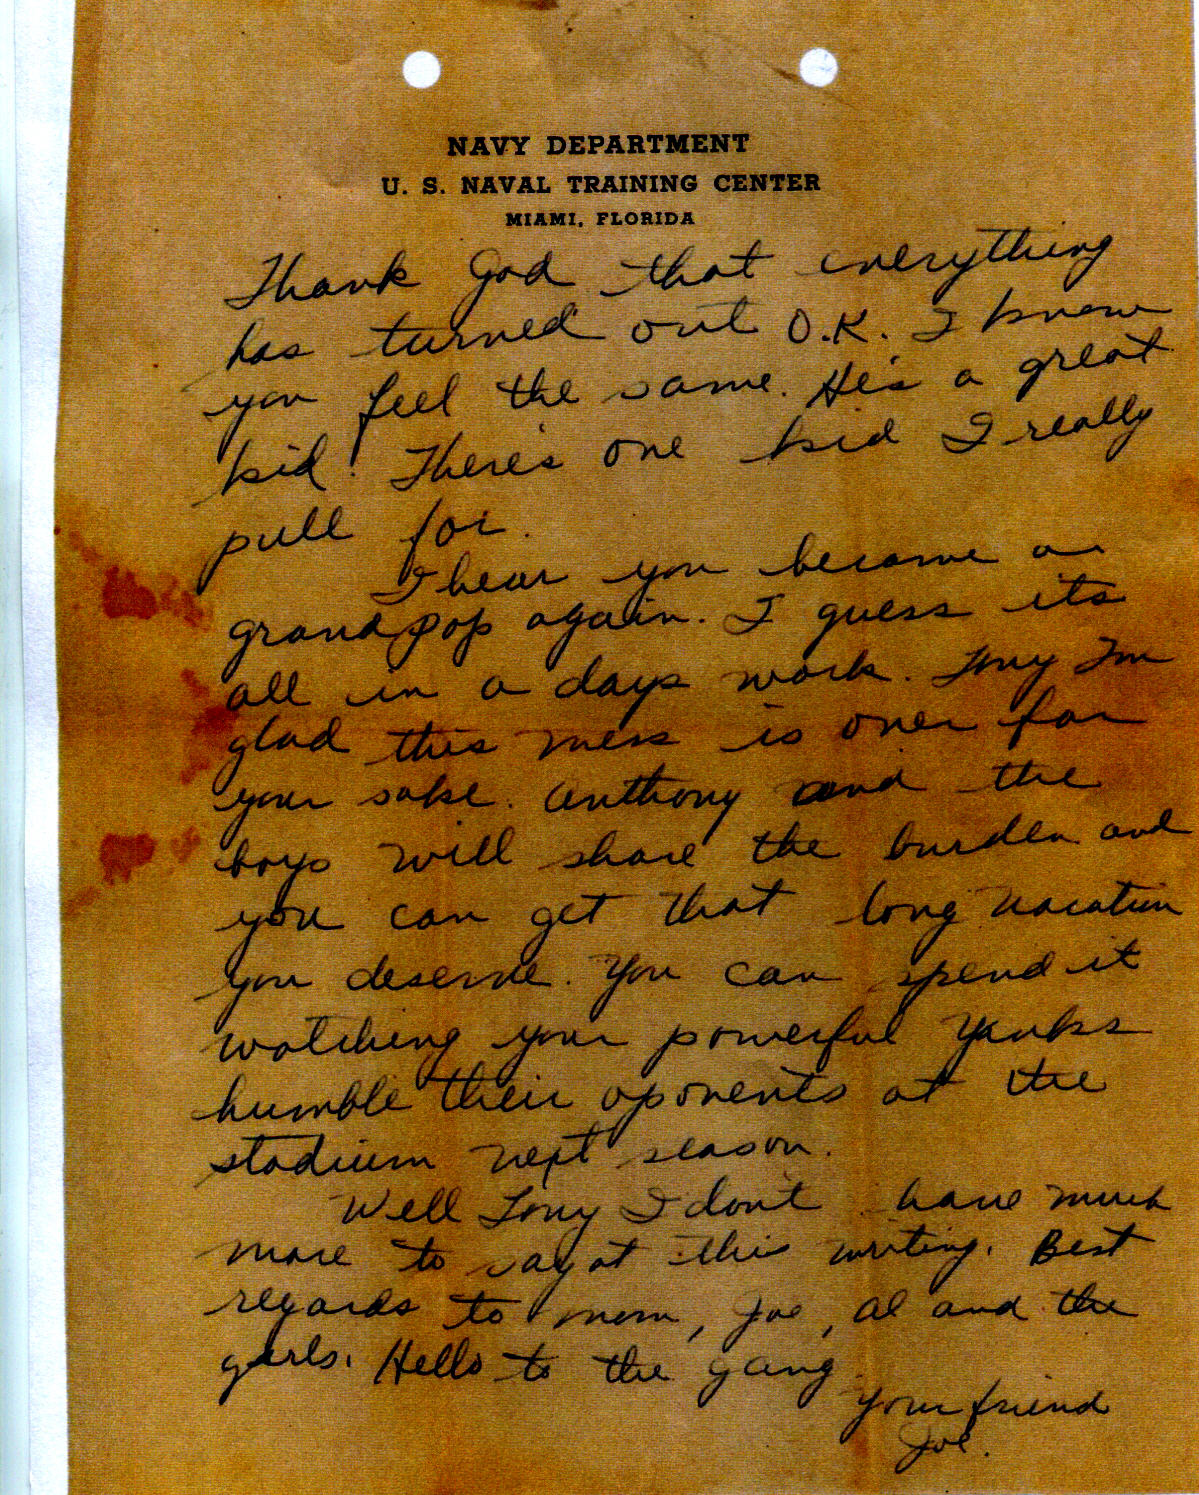 NAVY DEPARTMENT
U. S. NAVAL TRAINING CENTER
MIAMI, FLORIDA
Thank God that everything
has turned out O.K. I know
you feel the same. He's a great
kid. There's one kid I really
pull for.
I hear you became a
grand pop again. I guess its
all in a days work. Tony Im
glad this mess is over for
your sake. Anthony and the
boys will share the burden and
you can get that long vacation
you deserve. You can spend it
watching your powerful Yanks
humble their oponents at the
stadium next season.
Well Tony I dont have much
more to say at this writing. Best
regards to mom, Joe, Al and the
girls. Hello to the gang
your friend
Joe.